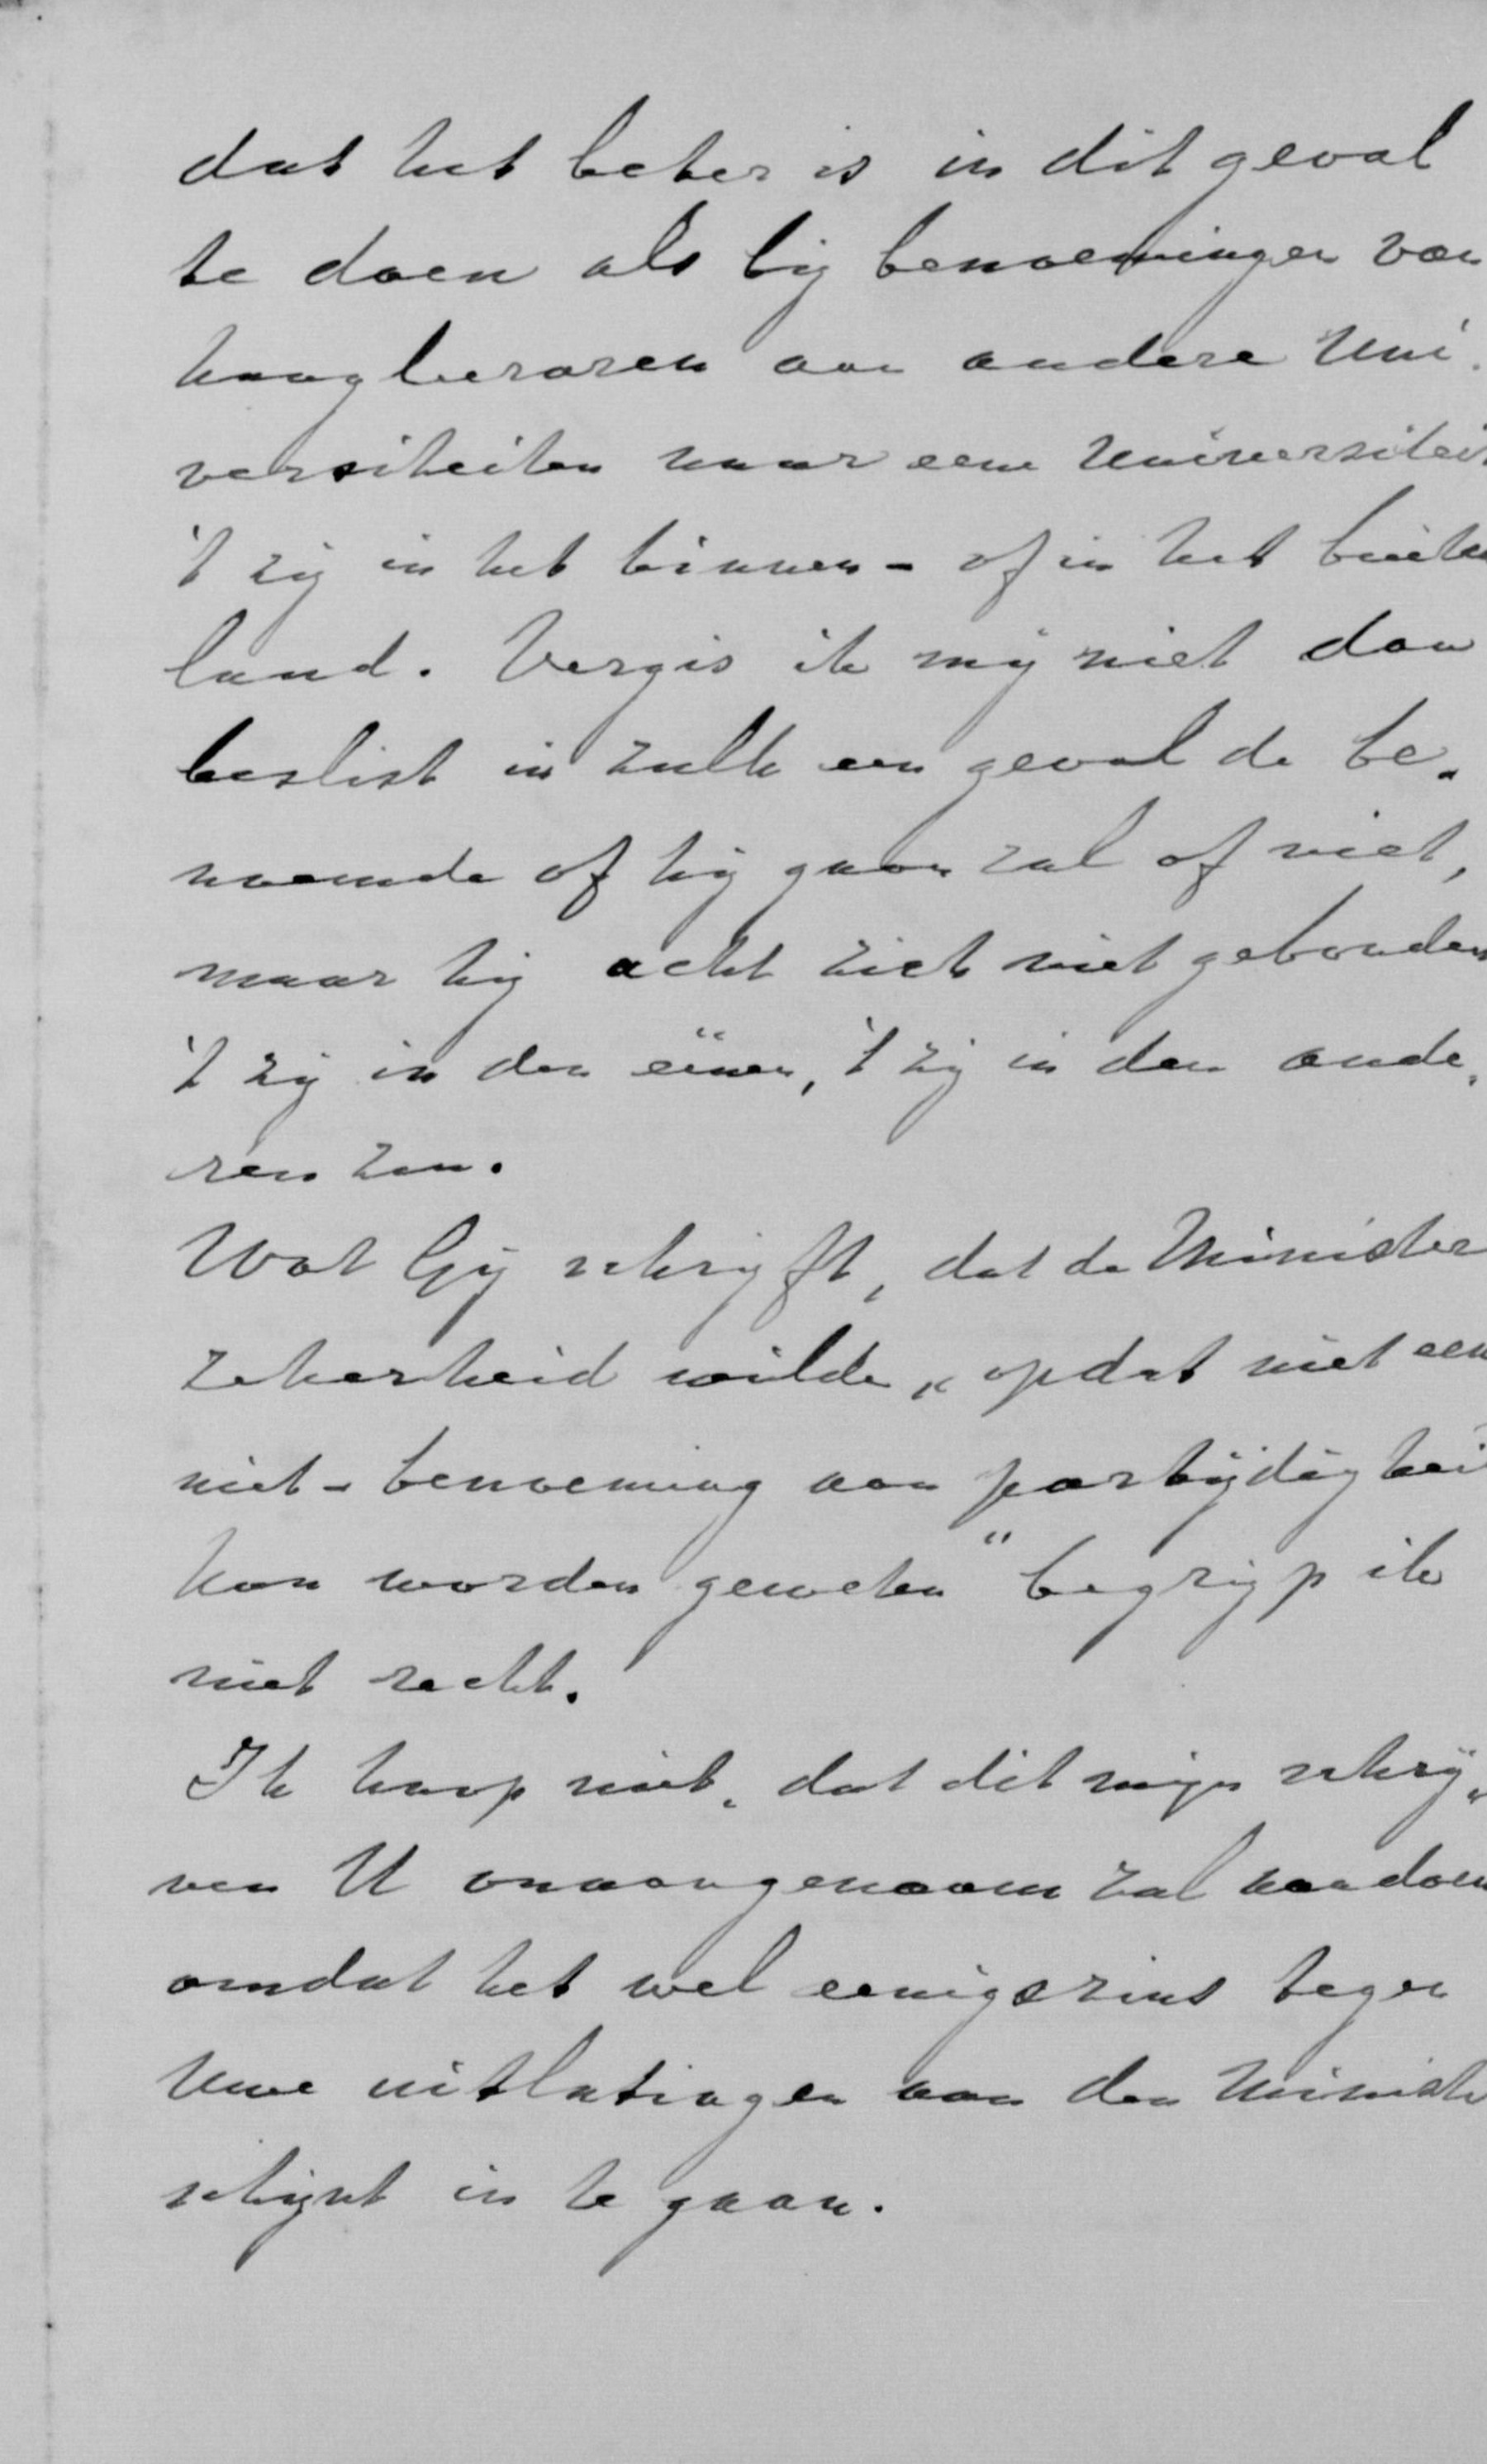 dat het beter is in dit geval
te doen als bij benoemingen van
hoogleeraren aan andere Uni-
versiteiten naar eene Universiteit
't zij in het binnen- of in het buiten
land. Vergis ik mij niet dan
beslist in zulk een geval de be-
noemde of hij gaan zal of niet,
maar hij acht zich niet gebonden
't zij in den eenen, 't zij in den ande-
ren zin.
Wat Gij schrijft, dat de Minister
zekerheid wilde „opdat niet een
niet-benoeming aan partijdighei
kon worden geweten" begrijp ik
niet recht.
Ik hoop niet, dat dit mijn schrij-
ven U onaangenaam zal aandoen
omdat het wel eenigszins tegen
Uwe uitlatingen aan den Ministe
schijnt in te gaan.